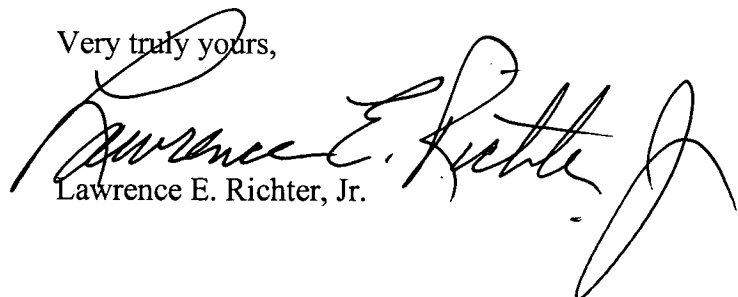 Very truly yours,
Lawrence E. Richter Jr
Lawrence E. Richter, Jr.